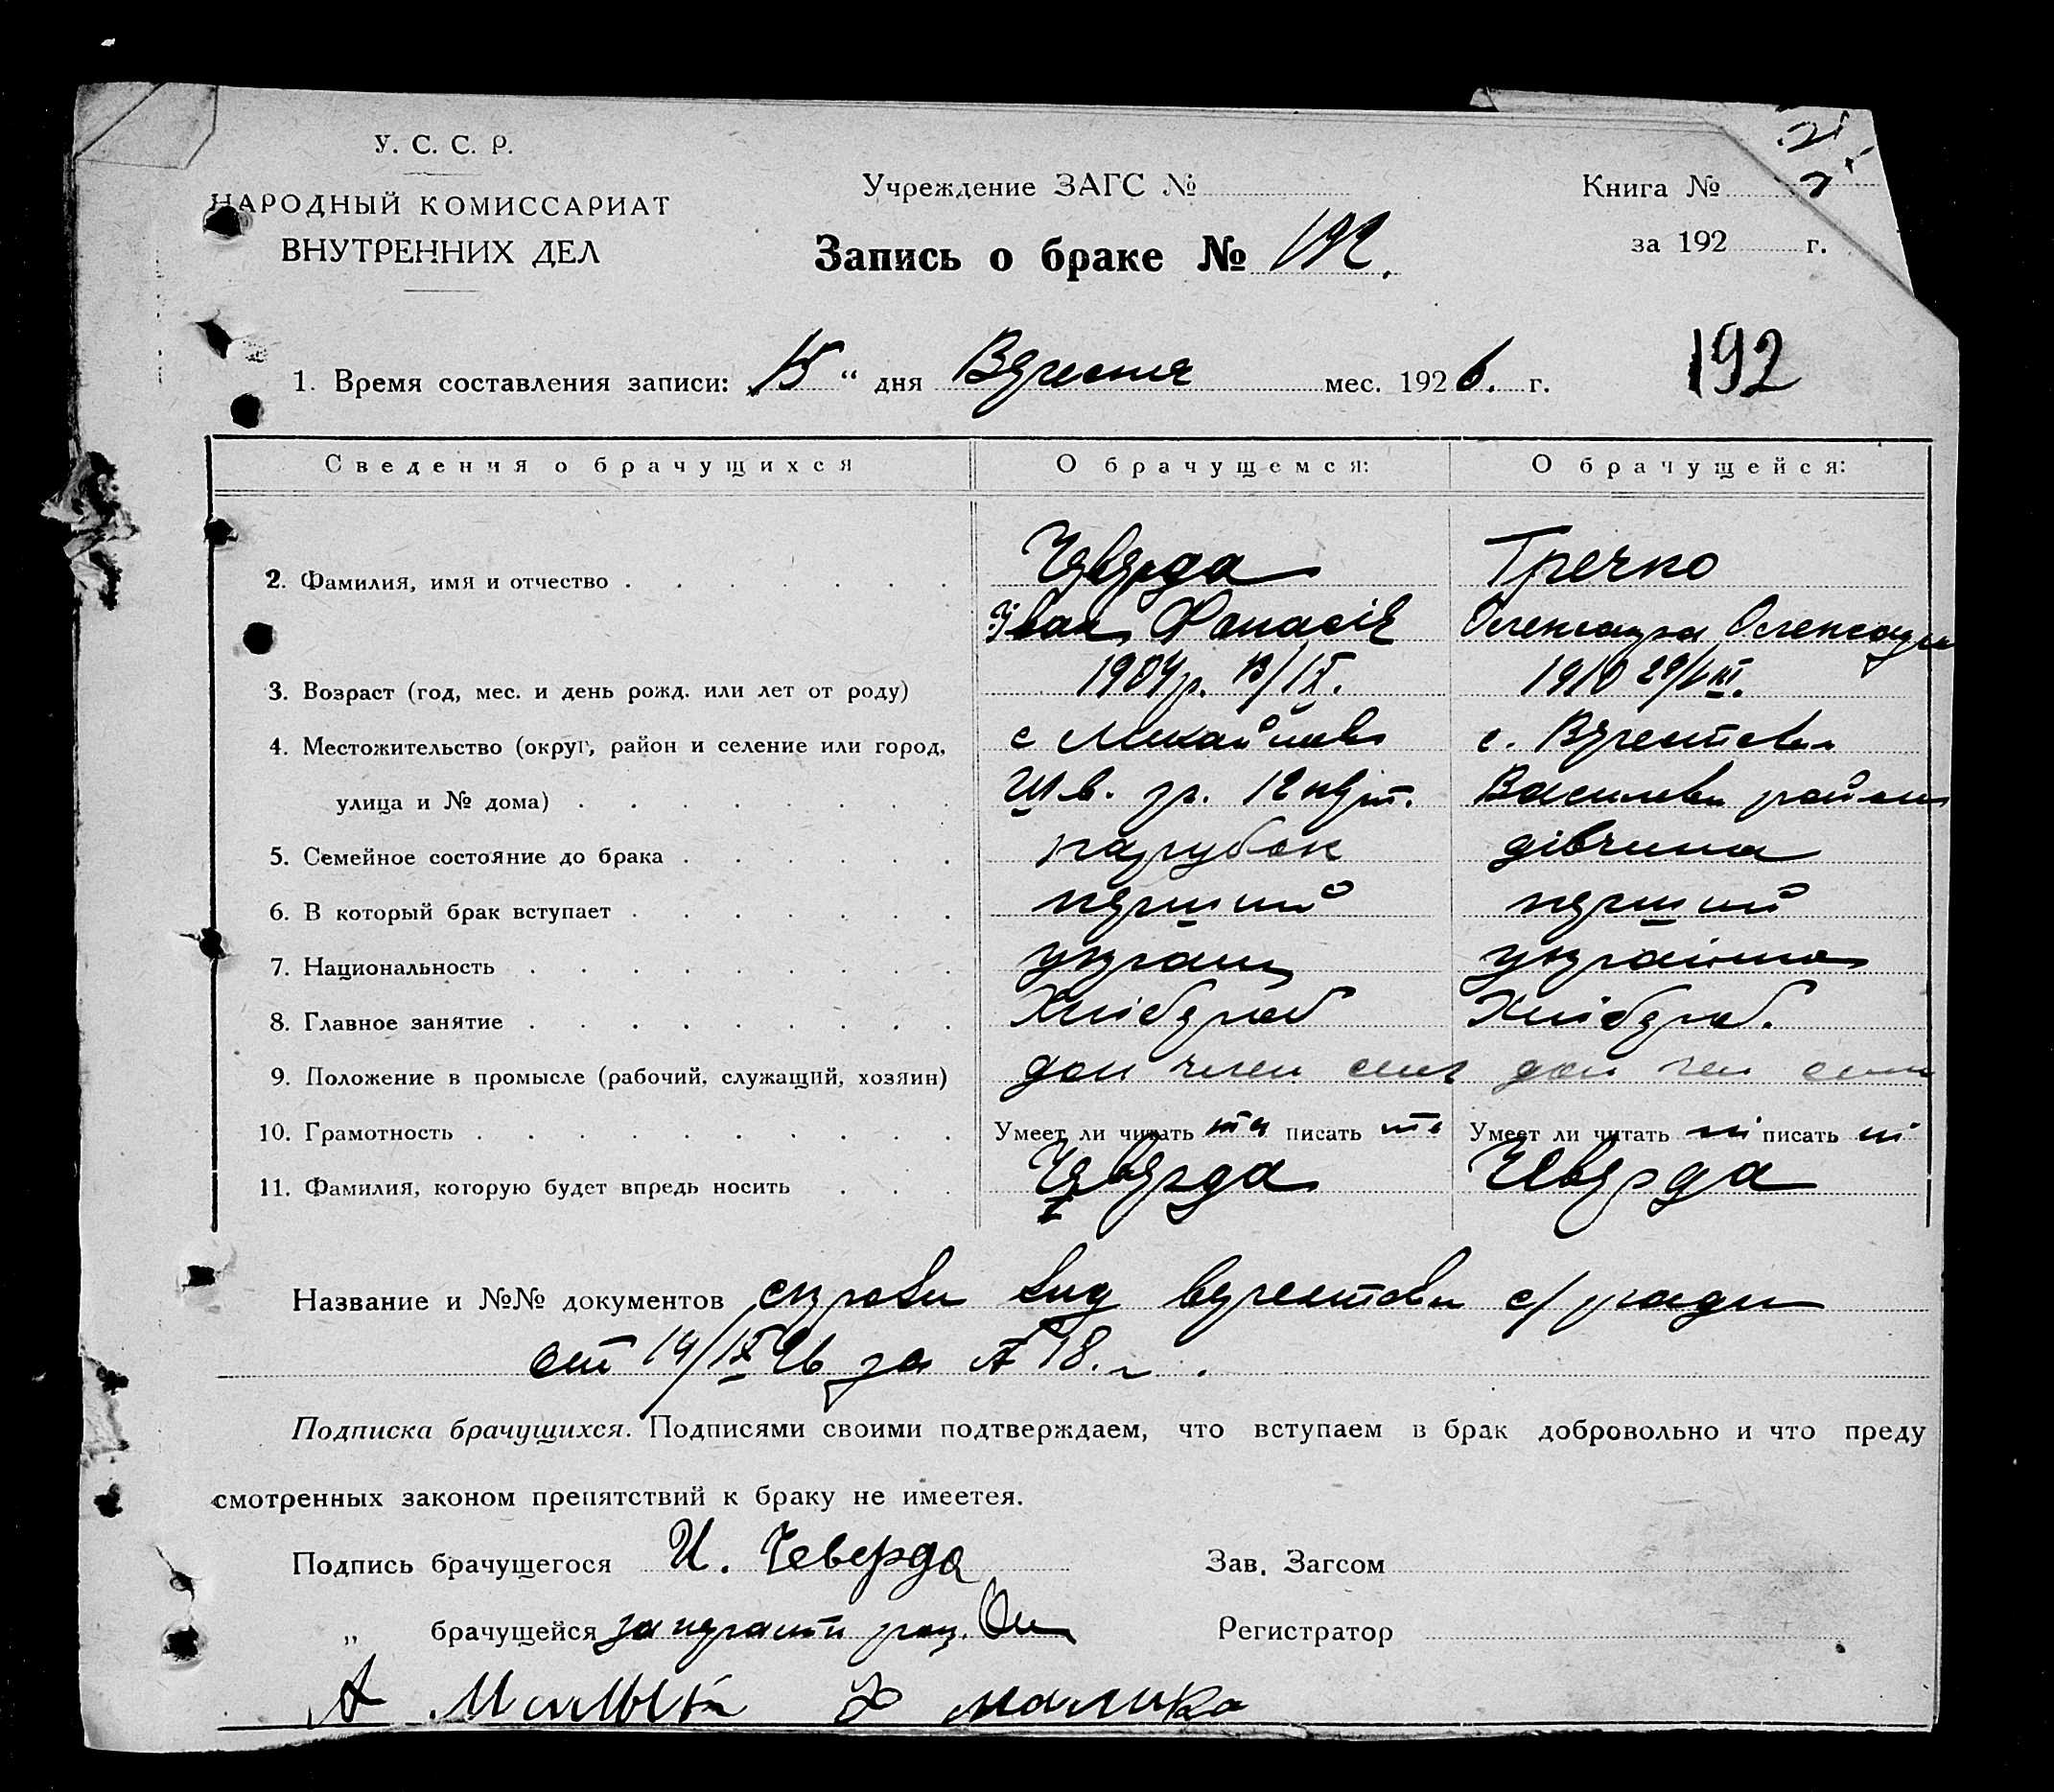 У. С. С. Р.
НАРОДНЫЙ КОМИССАРИАТ
ВНУТРЕННИХ ДЕЛ
Учреждение ЗАГС №
Книга №
за 192 г.
Запись о браке № 192.
192
1. Время составления записи: 15 " дня Вересня мес. 1926. г.
Сведения о брачущихся О брачущемся: О брачущейся:
2. Фамилия, имя и отчество Чеверда Гречко
Іван Панасів Олександра Олександр
3. Возраст (год, мес. и день рожд. или лет от роду) 1904 р. 13/IX. 1910 29/VIII.
4. Местожительство (округ, район и селение или город, с Михайлівка с. Верестовки
улица и № дома) Василевки району
5. Семейное состояние до брака парубок дівчина
6. В который брак вступает перший перший
7. Национальность українец українка
8. Главное занятие Хлібороб Хлібороб.
9. Положение в промысле (рабочий, служащий, хозяин) доп член сем доп чле сем
10. Грамотность Умеет ли читать так писать так Умеет ли читать ні писать ні
11. Фамилия, которую будет впредь носить Чеверда Чеверда
Название и №№ документов верестовки с/ ради
от 14/IX 26 за № 18.
Подписка брачущихся. Подписями своими подтверждаем, что вступаем в брак добровольно и что преду
смотренных законом препятствий к браку не имеется.
Подпись брачущегося И. Чеверда Зав. Загсом
„ брачущейся Регистратор